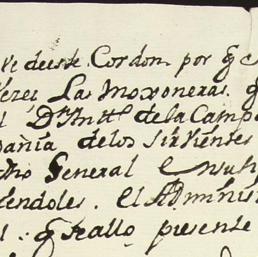 ve deeste Cordon por q̃
Vezes Las Moxoneras. q
l Dn Antt.o de la Camp
pañia delos sirvientes
cho General e
endoles. el Adminis
l . q̃ se allo presente